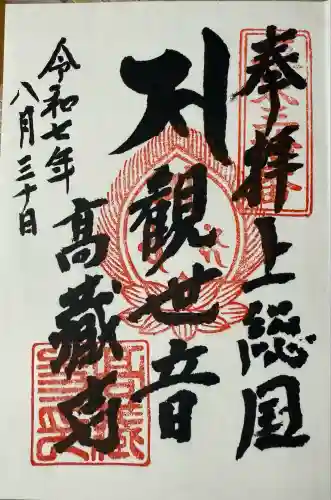 奉拝 上総国
観世音
高蔵寺
令和七年
八月三十日